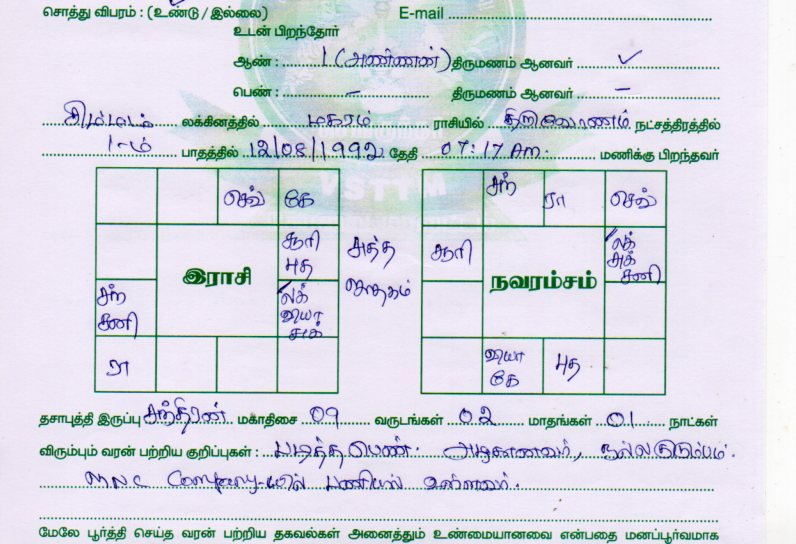 சொத்து விபரம் : (உண்டு / இல்லை) E-mail
உடன் பிறந்தோர்
ஆண் : 1 (அண்ணன்) திருமணம் ஆனவர் ✓
பெண் : – திருமணம் ஆனவர் –
சிம்மம் லக்கினத்தில் மகரம் ராசியில் திருவோணம் நட்சத்திரத்தில்
1-ம் பாதத்தில் 12/08/1992 தேதி 07:17 Am. மணிக்கு பிறந்தவர்
VSTTM
செவ் கே சந் ரா செவ்
சூரி புத சூரி லக் சுக் சனி
இராசி நவரம்சம்
ஜாதகம்
சந் சனி லக் வியா சுக்
ரா வியா கே புத
தசாபுத்தி இருப்பு சந்திரன் மகாதிசை 09 வருடங்கள் 02 மாதங்கள் 01 நாட்கள்
விரும்பும் வரன் பற்றிய குறிப்புகள் : படித்த பெண். நல்லகுடும்பம்.
MNC Company-யில் பணியில் உள்ளவர்.
மேலே பூர்த்தி செய்த வரன் பற்றிய தகவல்கள் அனைத்தும் உண்மையானவை என்பதை மனப்பூர்வமாக